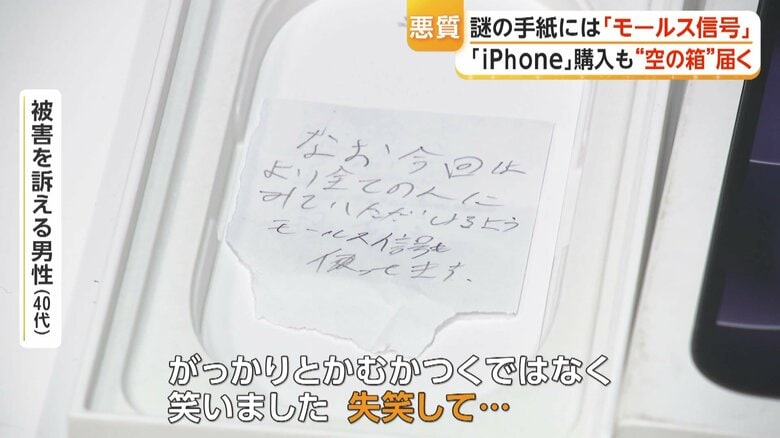 悪質
謎の手紙には「モールス信号」
「iPhone」購入も“空の箱”届く
被害を訴える男性(40代)
なお今回は
より全ての人に
みていただけるよう
モールス信号も
使ってます。
がっかりとかむかつくではなく
笑いました 失笑して…